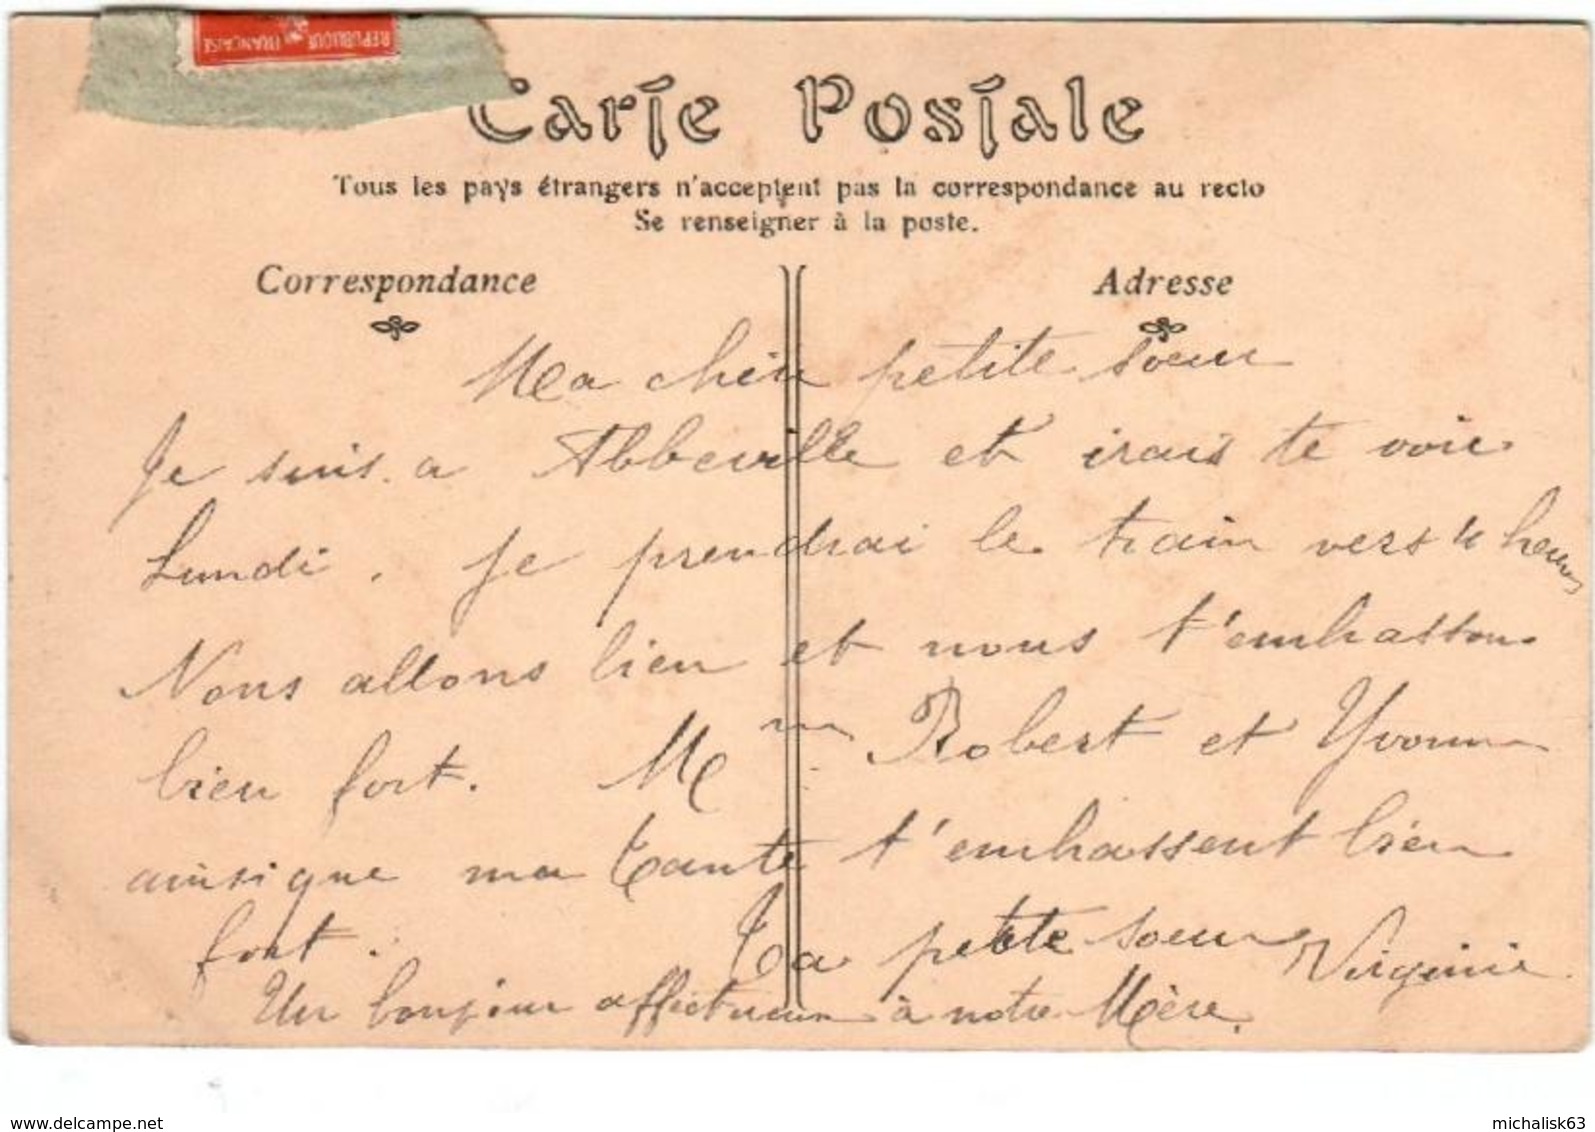 REPUBLIQUE FRANÇAISE
Carte Postale
Tous les pays étrangers n'acceptent pas la correspondance au recto
Se renseigner à la poste.
Correspondance
Adresse
Ma chèr petite soeur
Je suis a Abbeville et irais te voir
Lundi. Je prendrai le train vers 4 heures
Nous allons bien et nous t'embrassons
bien fort. Robert et Yvonne
ainsi que ma tante t'embrassent bien
fort. Ta petite soeur Virginie
Un bonjour affectueux à notre Mère.
www.delcampe.net
michalisk63